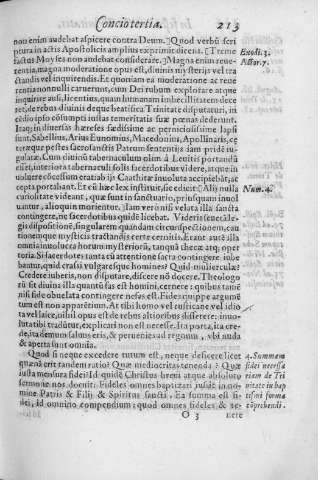 Concio tertia. 213
non enim audebat aspicere contra Deum. ] Quod verbū scri
ptura in actis Apostolicis amplius exprimit dicens. [ Treme
factus Moyses non audebat considerare. ] Magna enim reue-
rentia, magna moderatione opus est, diuinis mysterijs vel tra
ctandis vel inquirendis. Et quoniam hac moderatione ac reue
rentia nonnulli caruerunt, cum Dei rubum explorare atque
inquirere ausi, licentius, quam humanam imbecillitatem dece
ret, de rebus diuinis deque beatissima Trinitate disputaturi, in
eodio ipso cōsumpti iustas temeritatis suæ pœnas dederunt.
Itaq; in diuersas hæreses fædissimè ac perniciosissimè lapsi
sunt, Sabellius, Arius, Eunomius, Macedonius, Apollinaris, cę
teræque pestes sacrosanctis Patrum sententijs iam pridē iu-
gulatæ. Cum diuinū tabernaculum olim à Leuitis portandū
esset, interiora tabernaculi solis sacerdotibus videre, atque in
uoluere cōcessum erat: alijs Caathitæ inuoluta accipiebāt, ac
cepta portabant. Et cū hæc lex institui, sic edicit: [ Alij nulla
curiositate videant, quæ sunt in sanctuario, priusquam inuol
uantur, alioquin morientur. ] Iam verò nisi veluta illa sanctà
contingere, nec sacerdotibus quidē licebat. Videris sanctā le-
gis dispositionē, singularem quandam circumspectionem, cau
tionemque mysticis tractandis certè cernitis. Erant autē illa
omnia inuolucra horum mysteriorū, tanquā thecæ atq; oper
toria. Si sacerdotes tanta cū attentione sacra contingere iube
bantur, quid crassi vulgaresque homines? Quid mulierculæ?
Credere iuberis, non disputare, discere nō docere. Theologo
rū sit diuina illa quantū fas est homini, cernere: quibus tamē
nisi sub obuelata contingere nefas est. Fides quippe argumē
tum est non apparentium. At tibi homo vel rusticane vel idio
ta vel laice, nihil opus est de rebus altioribus disserere: inuo-
lutā tibi tradūtur, explicari non est necesse. Ita porta, ita cre-
de, ita demum saluus eris, & peruenies ad regnum, vbi nuda
& aperta sunt omnia.
Quod si neque excedere tutum est, neque desicere licet
quænā erit tandem ratio? Quæ mediocritas tenenda? Quæ
iusta mensura fidei? Id quidē Christus breui atque absoluto
sermone nos docuit. Fideles omnes baptizari iussit in no-
mine Patris & Filij & Spiritus sancti. Ea summa est fi-
dei, id omnino compendium: quod omnes fideles & se-
O 3 crete
Exodi. 3.
Actor. 7.
Num. 4.
4. Summam
fidei necessa
riam de Tri
nitate in bap
tismi forma
cōprehendi.